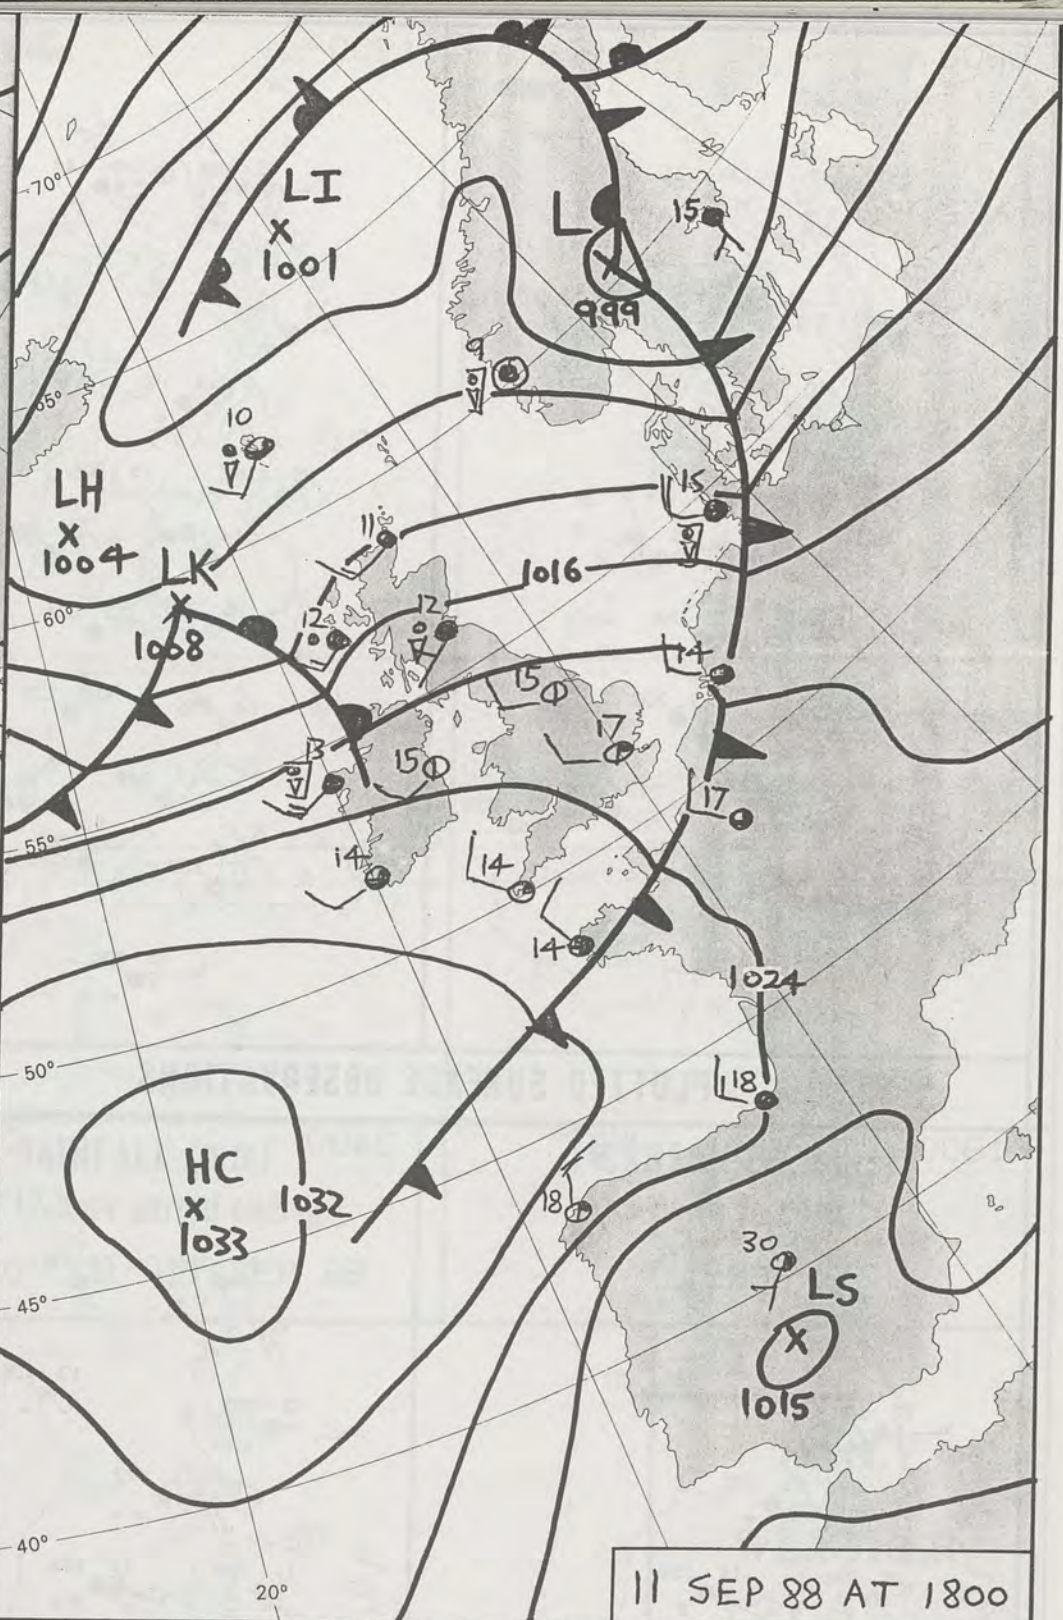 70°
LI
1001
L
15
999
65°
9
10
LH
1004
LK
60°
1008
11
15
1016
12
12
14
15
17
13
15
17
55°
14
14
14
1024
50°
18
HC
1033
1032
18
30
LS
1015
45°
40°
20°
11 SEP 88 AT 1800